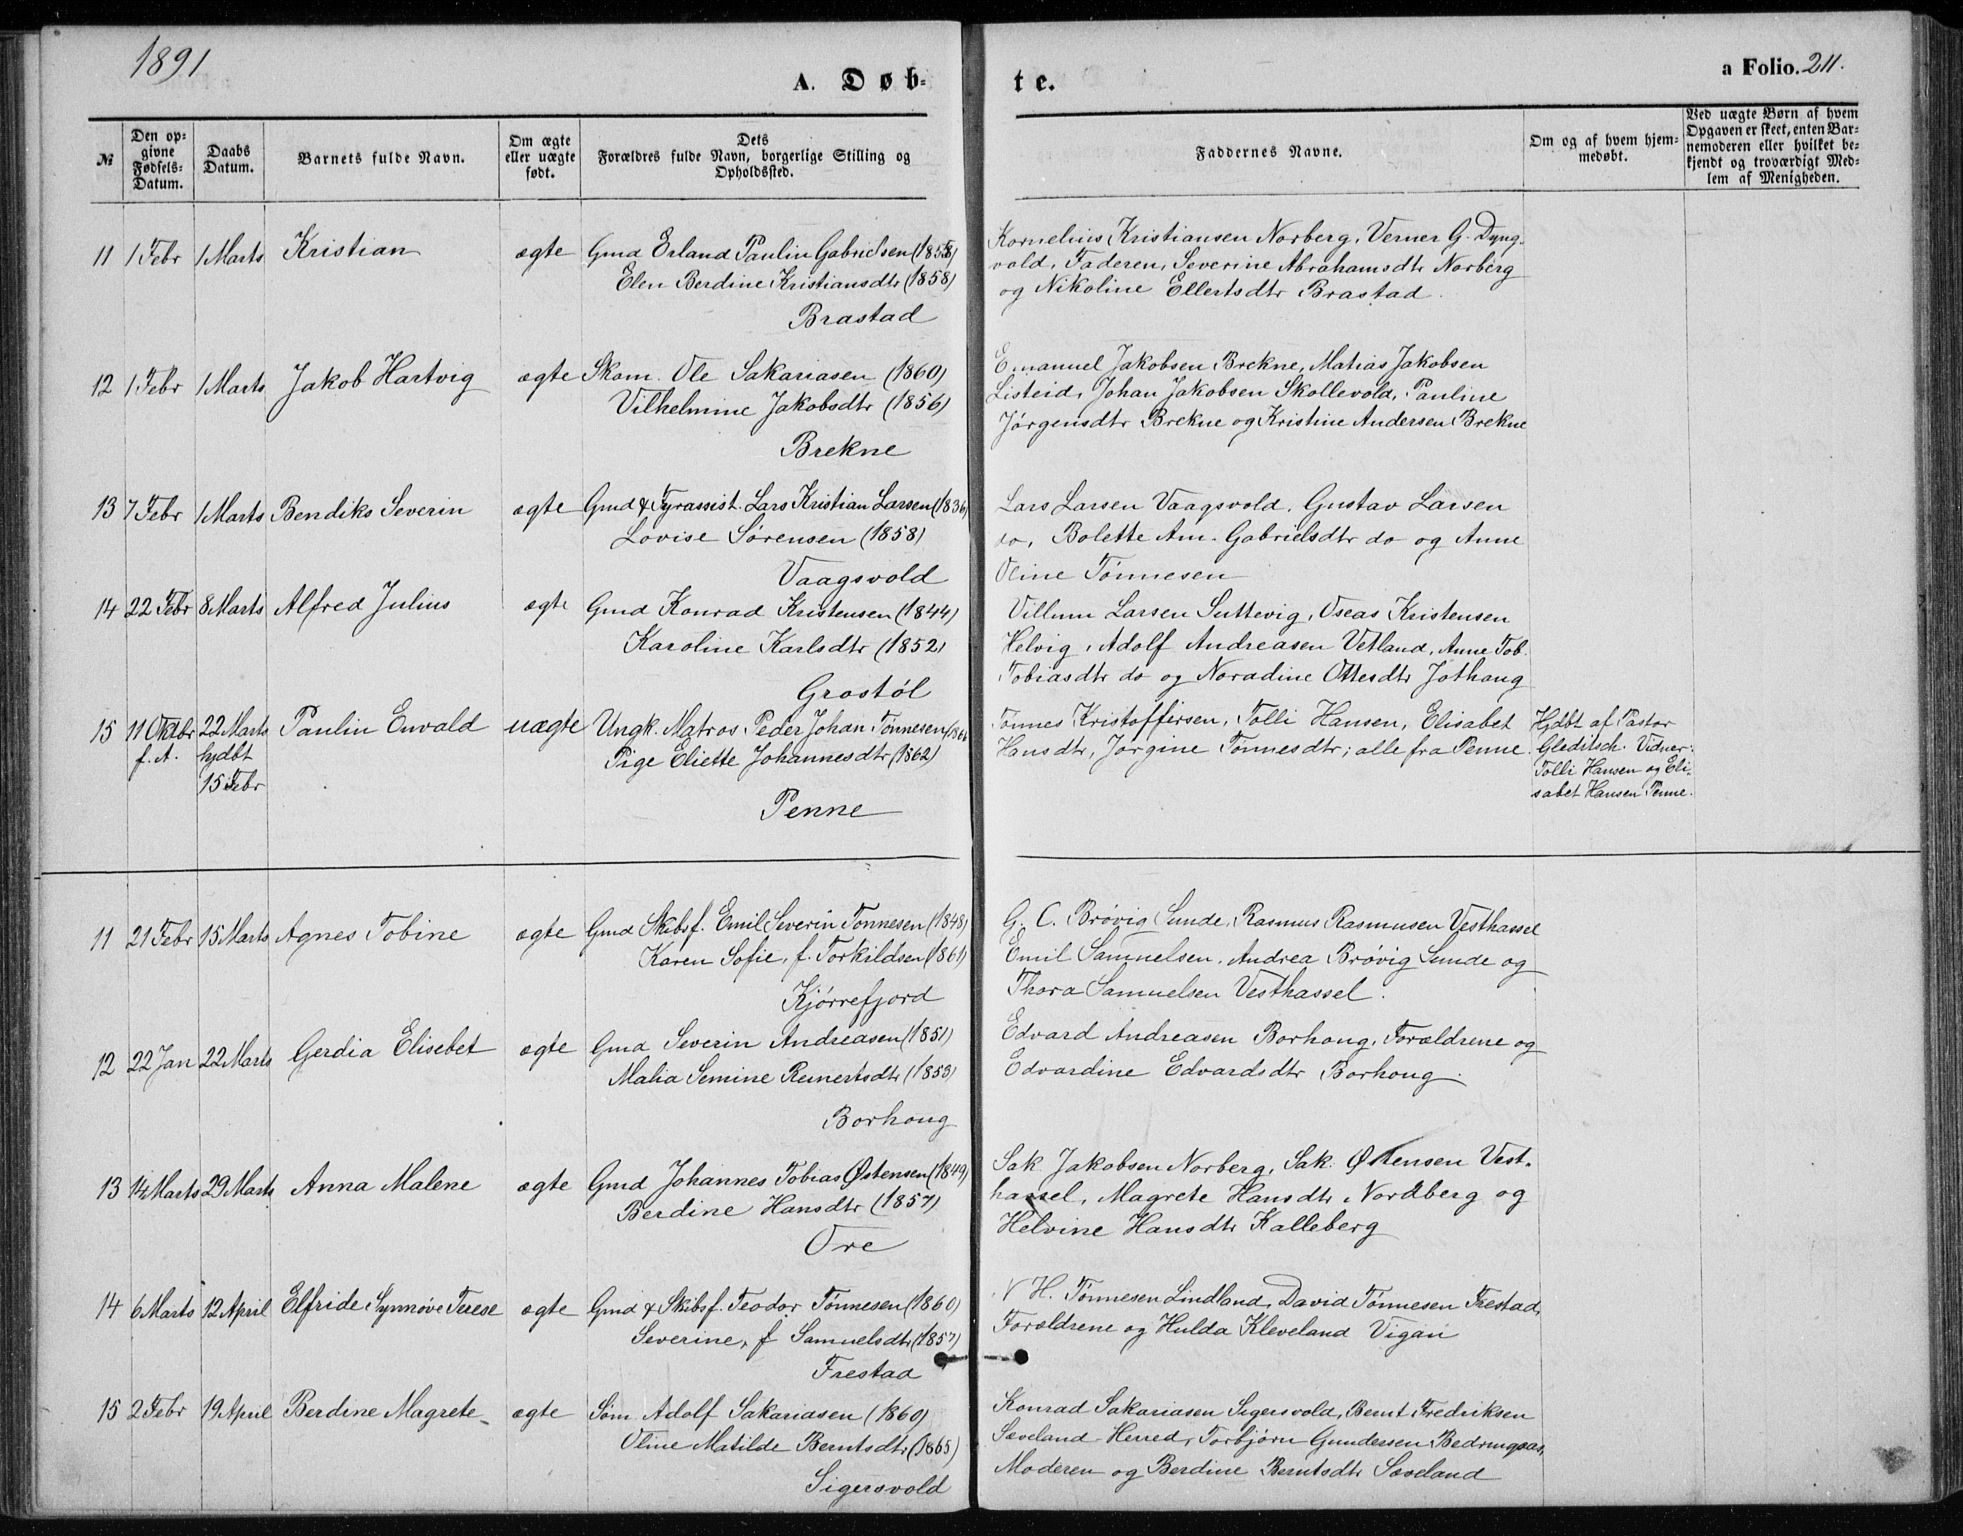 1891
A. Døbte.
a Folio. 211.
№
Den opgivne Fødsels-Datum.
Daabs Datum.
Barnets fulde Navn.
Om ægte eller uægte født.
Dets Forældres fulde Navn, borgerlige Stilling og Opholdssted.
Faddernes Navne.
Om og af hvem hjemmedøbt.
Ved uægte Børn af hvem Opgaven er skeet, enten Barnemoderen eller hvilket bekjendt og troværdigt Medlem af Menigheden.
11 1 Febr 1 Marts Kristian ægte Gmd Erland Paulin Gabrielsen
Elen Berdine Kristiansdtr (1858)
Brastad
Kornelius Kristiansen Norberg, Verner G. Dyng-
vold, Faderen, Severine Abrahamsdtr Norberg
og Nikoline Ellertsdtr Brastad.
12 1 Febr 1 Marts Jakob Hartvig ægte Skom. Ole Sakariasen (1860)
Vilhelmine Jakobsdtr (1856)
Brekne
Emanuel Jakobsen Brekne, Matias Jakobsen
Listeid, Johan Jakobsen Skollevold, Pauline
Jørgensdtr Brekne og Kristine Andersen Brekne
13 7 Febr 1 Marts Bendiks Severin ægte Gmd & Fyrassist. Lars Kristian Larsen (1836)
Lovise Sørensen (1858)
Vaagsvold
Lars Larsen Vaagsvold, Gustav Larsen
do, Bolette Am. Gabrielsdtr do og Anne
Oline Tønnesen
14 22 Febr 8 Marts Alfred Julius ægte Gmd Konrad Kristensen (1844)
Karoline Karlsdtr (1852)
Grostøl
Villum Larsen Suttevig, Oseas Kristensen
Helvig, Adolf Andreasen Vetland, Anne Tob.
Tobiasdtr do og Noradine Ottesdtr Jøthaug
15 11 Oktbr f. A. 22 Marts hjdbt 15 Febr Paulin Envald uægte Ungk. Matros Peder Johan Tønnesen
Pige Eliette Johannesdtr (1862)
Penne
Tønnes Kristoffersen, Tolli Hansen, Elisabet
Hansdtr, Jørgine Tønnesdtr; alle fra Penne.
Hjdbt af Pastor
Gleditsch. Vidner:
Tolli Hansen og Eli-
sabet Hansen Penne.
11 21 Febr 15 Marts Agnes Tobine ægte Gmd Skibsf. Emil Severin Tønnesen (1848)
Karen Sofie, f. Torkildsen (1861)
Kjørrefjord
G. C. Brøvig Sunde, Rasmus Rasmusen Vesthassel
Emil Samuelsen, Andrea Brøvig Sunde og
Thora Samuelsen Vesthassel.
12 22 Jan 22 Marts Gerdia Elisebet ægte Gmd Severin Andreasen (1851)
Malia Semine Reinertsdtr (1853)
Borhoug
Edvard Andreasen Borhoug, Forældrene og
Edvardine Edvardsdtr Borhoug.
13 14 Marts 29 Marts Anna Malene ægte Gmd Johannes Tobias Østensen (1849)
Berdine Hansdtr (1857)
Ore
Sak. Jakobsen Norberg, Sak. Østensen Vest-
hassel, Magrete Hansdtr Nordberg og
Helvine Hansdtr Kalleberg
14 6 Marts 12 April Elfride Synnøve Terese ægte Gmd & Skibsf. Teodor Tønnesen (1860)
Severine, f Samuelsdtr (1857)
Frestad
H. Tønnesen Lindland, David Tønnesen Frestad,
Forældrene og Hulda Kleveland Vigan
15 2 Febr 19 April Berdine Magrete ægte Søm. Adolf Sakariasen (1860)
Oline Matilde Berntsdtr (1865)
Sigersvold
Konrad Sakariasen Sigersvold, Bernt Fredriksen
Sæveland Herred, Torbjørn Gundersen
Moderen og Berdine Berntsdtr Sæveland